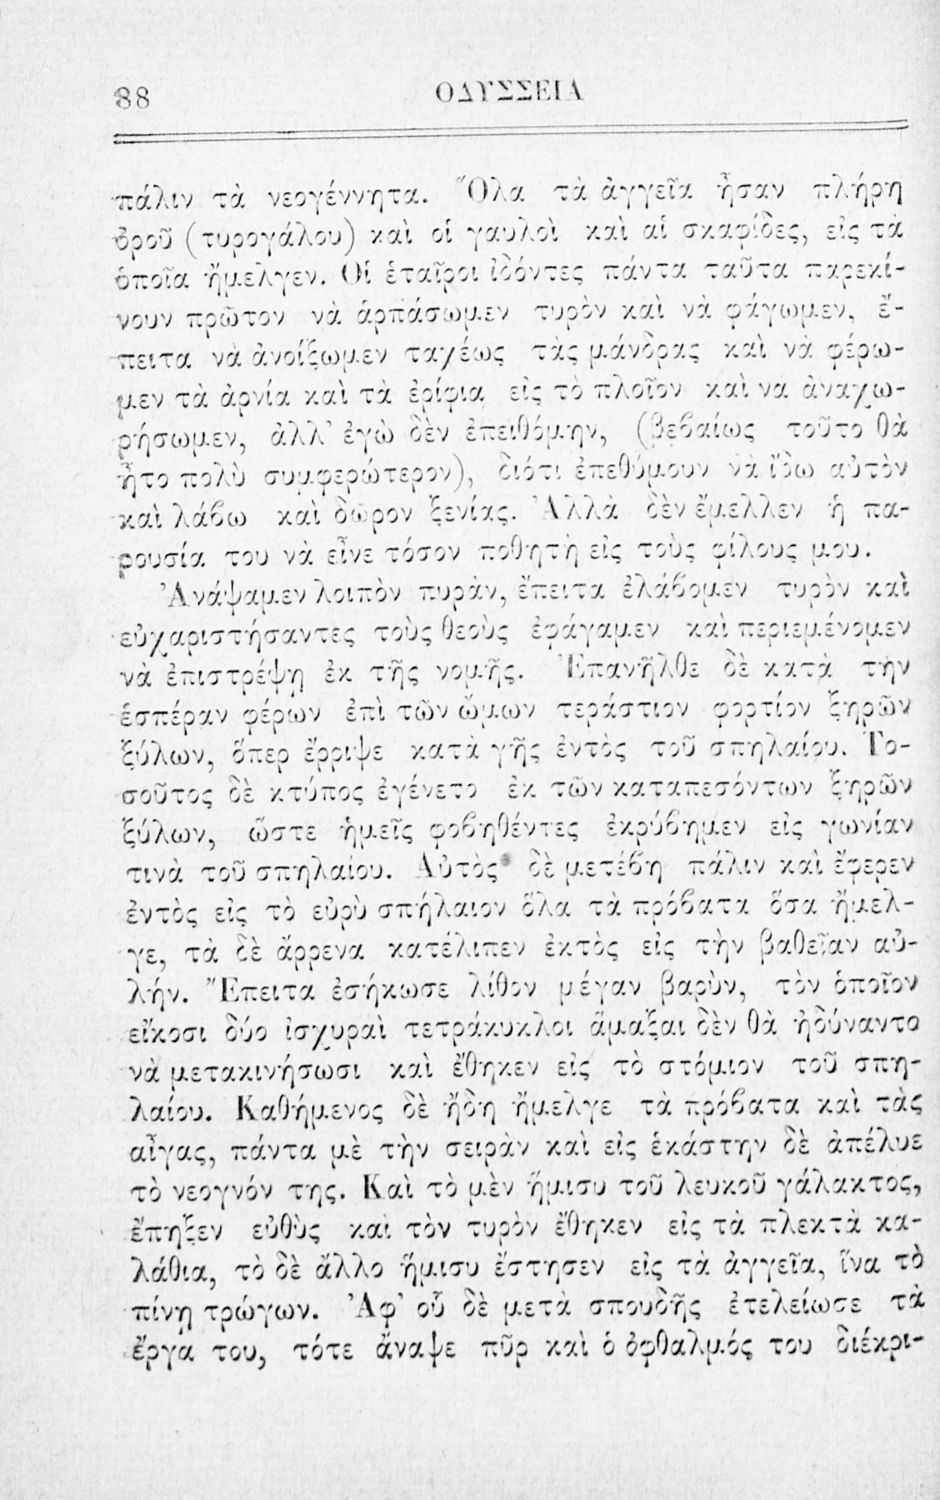 88 ΟΔΥΣΣΕΙΑ
πάλιν τὰ νεογέννητα. Ὅλα τὰ ἀγγεῖα ἦσαν πλήρη
ὀροῦ (τυρογάλου) καὶ οἱ γαυλοὶ καὶ αἱ σκαφίδες, εἰς τὰ
ὁποῖα ἤμελγεν. Οἱ ἑταῖροι ἰδόντες πάντα ταῦτα παρεκί-
νουν πρῶτον νὰ ἁρπάσωμεν τυρὸν καὶ νὰ φάγωμεν, ἔ-
πειτα νὰ ἀνοίξωμεν ταχέως τὰς μάνδρας καὶ νὰ φέρω-
μεν τὰ ἀρνία καὶ τὰ ἐρίφια εἰς τὸ πλοῖον καὶ νὰ ἀναχω-
ρήσωμεν, ἀλλ' ἐγὼ δὲν ἐπειθόμην, (βεβαίως τοῦτο θὰ
ἦτο πολὺ συμφερώτερον), διότι ἐπεθύμουν νὰ ἴδω αὐτὸν
καὶ λάβω καὶ δῶρον ξενίας. Ἀλλὰ δὲν ἔμελλεν ἡ πα-
ρουσία του νὰ εἶνε τόσον ποθητὴ εἰς τοὺς φίλους μου.
Ἀνάψαμεν λοιπὸν πυρὰν, ἔπειτα ἐλάβομεν τυρὸν καὶ
εὐχαριστήσαντες τοὺς θεοὺς ἐφάγαμεν καὶ περιεμένομεν
νὰ ἐπιστρέψῃ ἐκ τῆς νομῆς. Ἐπανῆλθε δὲ κατὰ τὴν
ἑσπέραν φέρων ἐπὶ τῶν ὤμων τεράστιον φορτίον ξηρῶν
ξύλων, ὅπερ ἔρριψε κατὰ γῆς ἐντὸς τοῦ σπηλαίου. Το-
σοῦτος δὲ κτύπος ἐγένετο ἐκ τῶν καταπεσόντων ξηρῶν
ξύλων, ὥστε ἡμεῖς φοβηθέντες ἐκρύβημεν εἰς γωνίαν
τινὰ τοῦ σπηλαίου. Αὐτὸς δὲ μετέβη πάλιν καὶ ἔφερεν
ἐντὸς εἰς τὸ εὐρὺ σπήλαιον ὅλα τὰ πρόβατα ὅσα ἤμελ-
γε, τὰ δὲ ἄρρενα κατέλιπεν ἐκτὸς εἰς τὴν βαθεῖαν αὐ-
λήν. Ἔπειτα ἐσήκωσε λίθον μέγαν βαρὺν, τὸν ὁποῖον
εἴκοσι δύο ἰσχυραὶ τετράκυκλοι ἅμαξαι δὲν θὰ ἠδύναντο
νὰ μετακινήσωσι καὶ ἔθηκεν εἰς τὸ στόμιον τοῦ σπη-
λαίου. Καθήμενος δὲ ἤδη ἤμελγε τὰ πρόβατα καὶ τὰς
αἶγας, πάντα μὲ τὴν σειρὰν καὶ εἰς ἑκάστην δὲ ἀπέλυε
τὸ νεογνόν της. Καὶ τὸ μὲν ἥμισυ τοῦ λευκοῦ γάλακτος,
ἔπηξεν εὐθὺς καὶ τὸν τυρὸν ἔθηκεν εἰς τὰ πλεκτὰ κα-
λάθια, τὸ δὲ ἄλλο ἥμισυ ἔστησεν εἰς τὰ ἀγγεῖα, ἵνα τὸ
πίνῃ τρώγων. Ἀφ' οὗ δὲ μετὰ σπουδῆς ἐτελείωσε τὰ
ἔργα του, τότε ἄναψε πῦρ καὶ ὁ ὀφθαλμός του διέκρι-